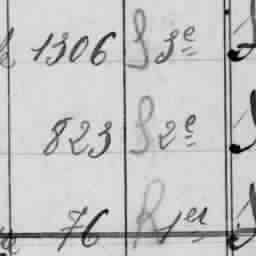 1306 S 3e
823 S 2e
76 R 1er